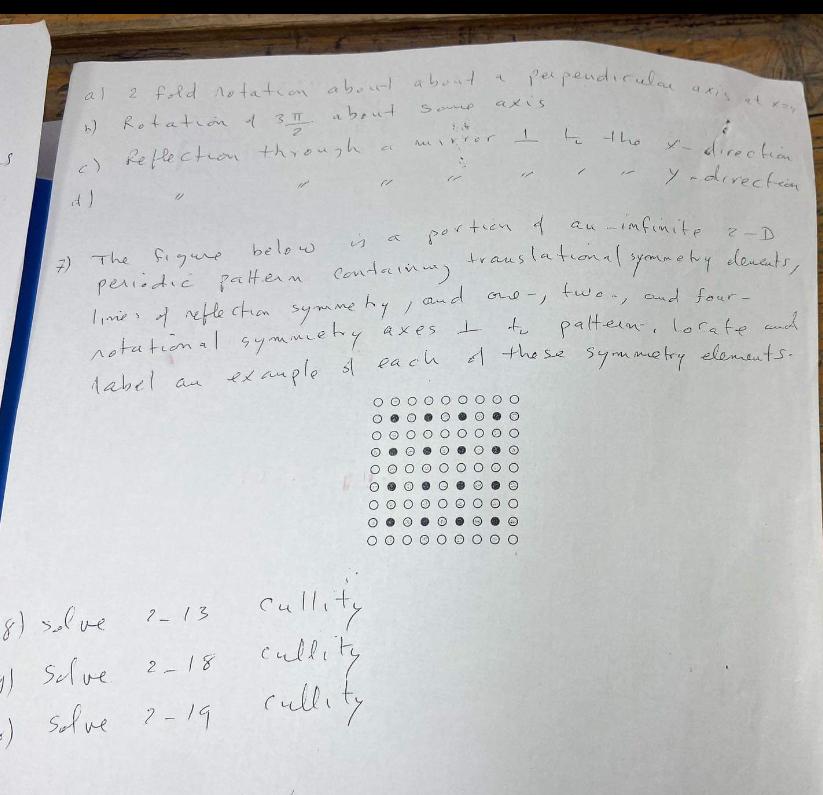 a) 2 fold rotation about about a perpendicular axis at
b) Rotation of 3π/2 about same axis
c) Reflection through a mirror ⊥ to the x-direction
d) " " " " " " " y-direction
7) The figure below is a portion of an infinite 2-D
periodic pattern containing translational symmetry elements,
lines of reflection symmetry, and one-, two-, and four-
rotational symmetry axes ⊥ to pattern. locate and
label an example of each of these symmetry elements.
8) solve 2-13 cullity
) Solve 2-18 cullity
) Solve 2-19 cullity